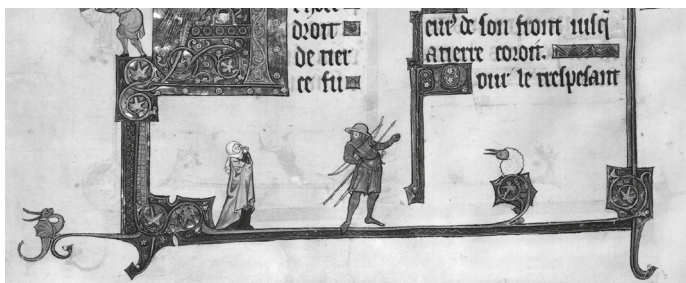 droit
de tier
ce fu
eur' de son front iusq̃
a tierre coroit.
Pour le trespesant